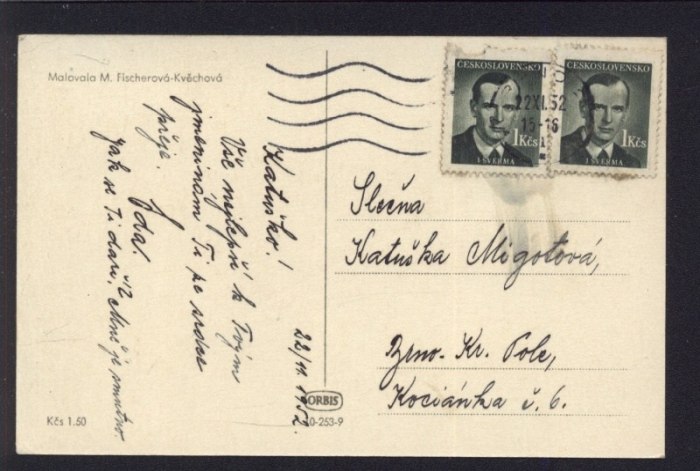 Malovala M. Fischerová-Kvěchová
Katuško!
Vše nejlepší k Tvým
jmeninám Ti ze srdce
přeje
Jda.
Jak se Ti daří, Mně je smutno.
22/11 1952.
Kčs 1.50
ORBIS
0-253-9
ČESKOSLOVENSKO
1Kčs
J. ŠVERMA
ČESKOSLOVENSKO
1Kčs
J. ŠVERMA
22.XI.52
15-16
Slečna
Katuška Migotová,
Brno-Kr. Pole,
Kociánka č. 6.